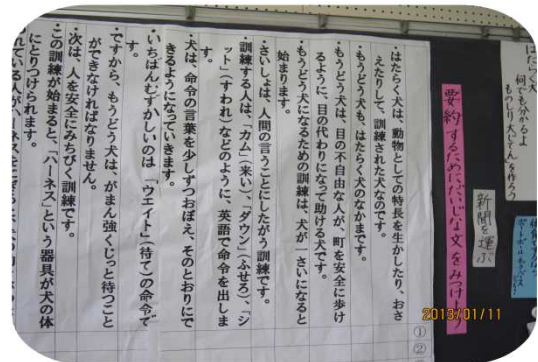 はたらく犬
何でも分かるよ
もの知り大じてんを作ろう
新聞を運ぶ
要約するためにだいじな文をみつけよう
①
②
・はたらく犬は、動物としての特長を生かしたり、おさ
えたりして、訓練された犬なのです。
・もうどう犬も、はたらく犬のなかまです。
・もうどう犬は、目の不自由な人が、町を安全に歩け
るように、目の代わりになって助ける犬です。
・もうどう犬になるための訓練は、犬が一さいになると
始まります。
・さいしょは、人間の言うことにしたがう訓練です。
・訓練する人は、「カム」(来い)、「ダウン」(ふせろ)、「シ
ット」(すわれ)などのように、英語で命令を出しま
す。
・犬は、命令の言葉を少しずつおぼえ、そのとおりにで
きるようになっていきます。
・いちばんむずかしいのは「ウエイト」(待て)の命令で
す。
・ですから、もうどう犬は、がまん強くじっと待つこと
ができなければなりません。
・次は、人を安全にみちびく訓練です。
・この訓練が始まると、「ハーネス」という器具が犬の体
にとりつけられます。
2013/01/11